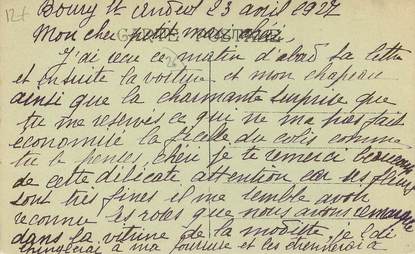 Boury St Andéol 23 avril 1927
Mon cher petit mari chéri
CARTE POSTALE
J'ai reçu ce matin d'abord ta lettre
et ensuite la voilette et mon chapeau
ainsi que la charmante surprise que
tu me réserves ce qui ne m'a pas fait
économisé la ficelle du colis comme
tu le penses, chéri je te remerci beaucoup
de cette délicate attention car ses fleurs
sont très fines il me semble avoir
reconnu les roses que nous avons remarqué
dans la vitrine de la modiste, je
à ma fourrure et les